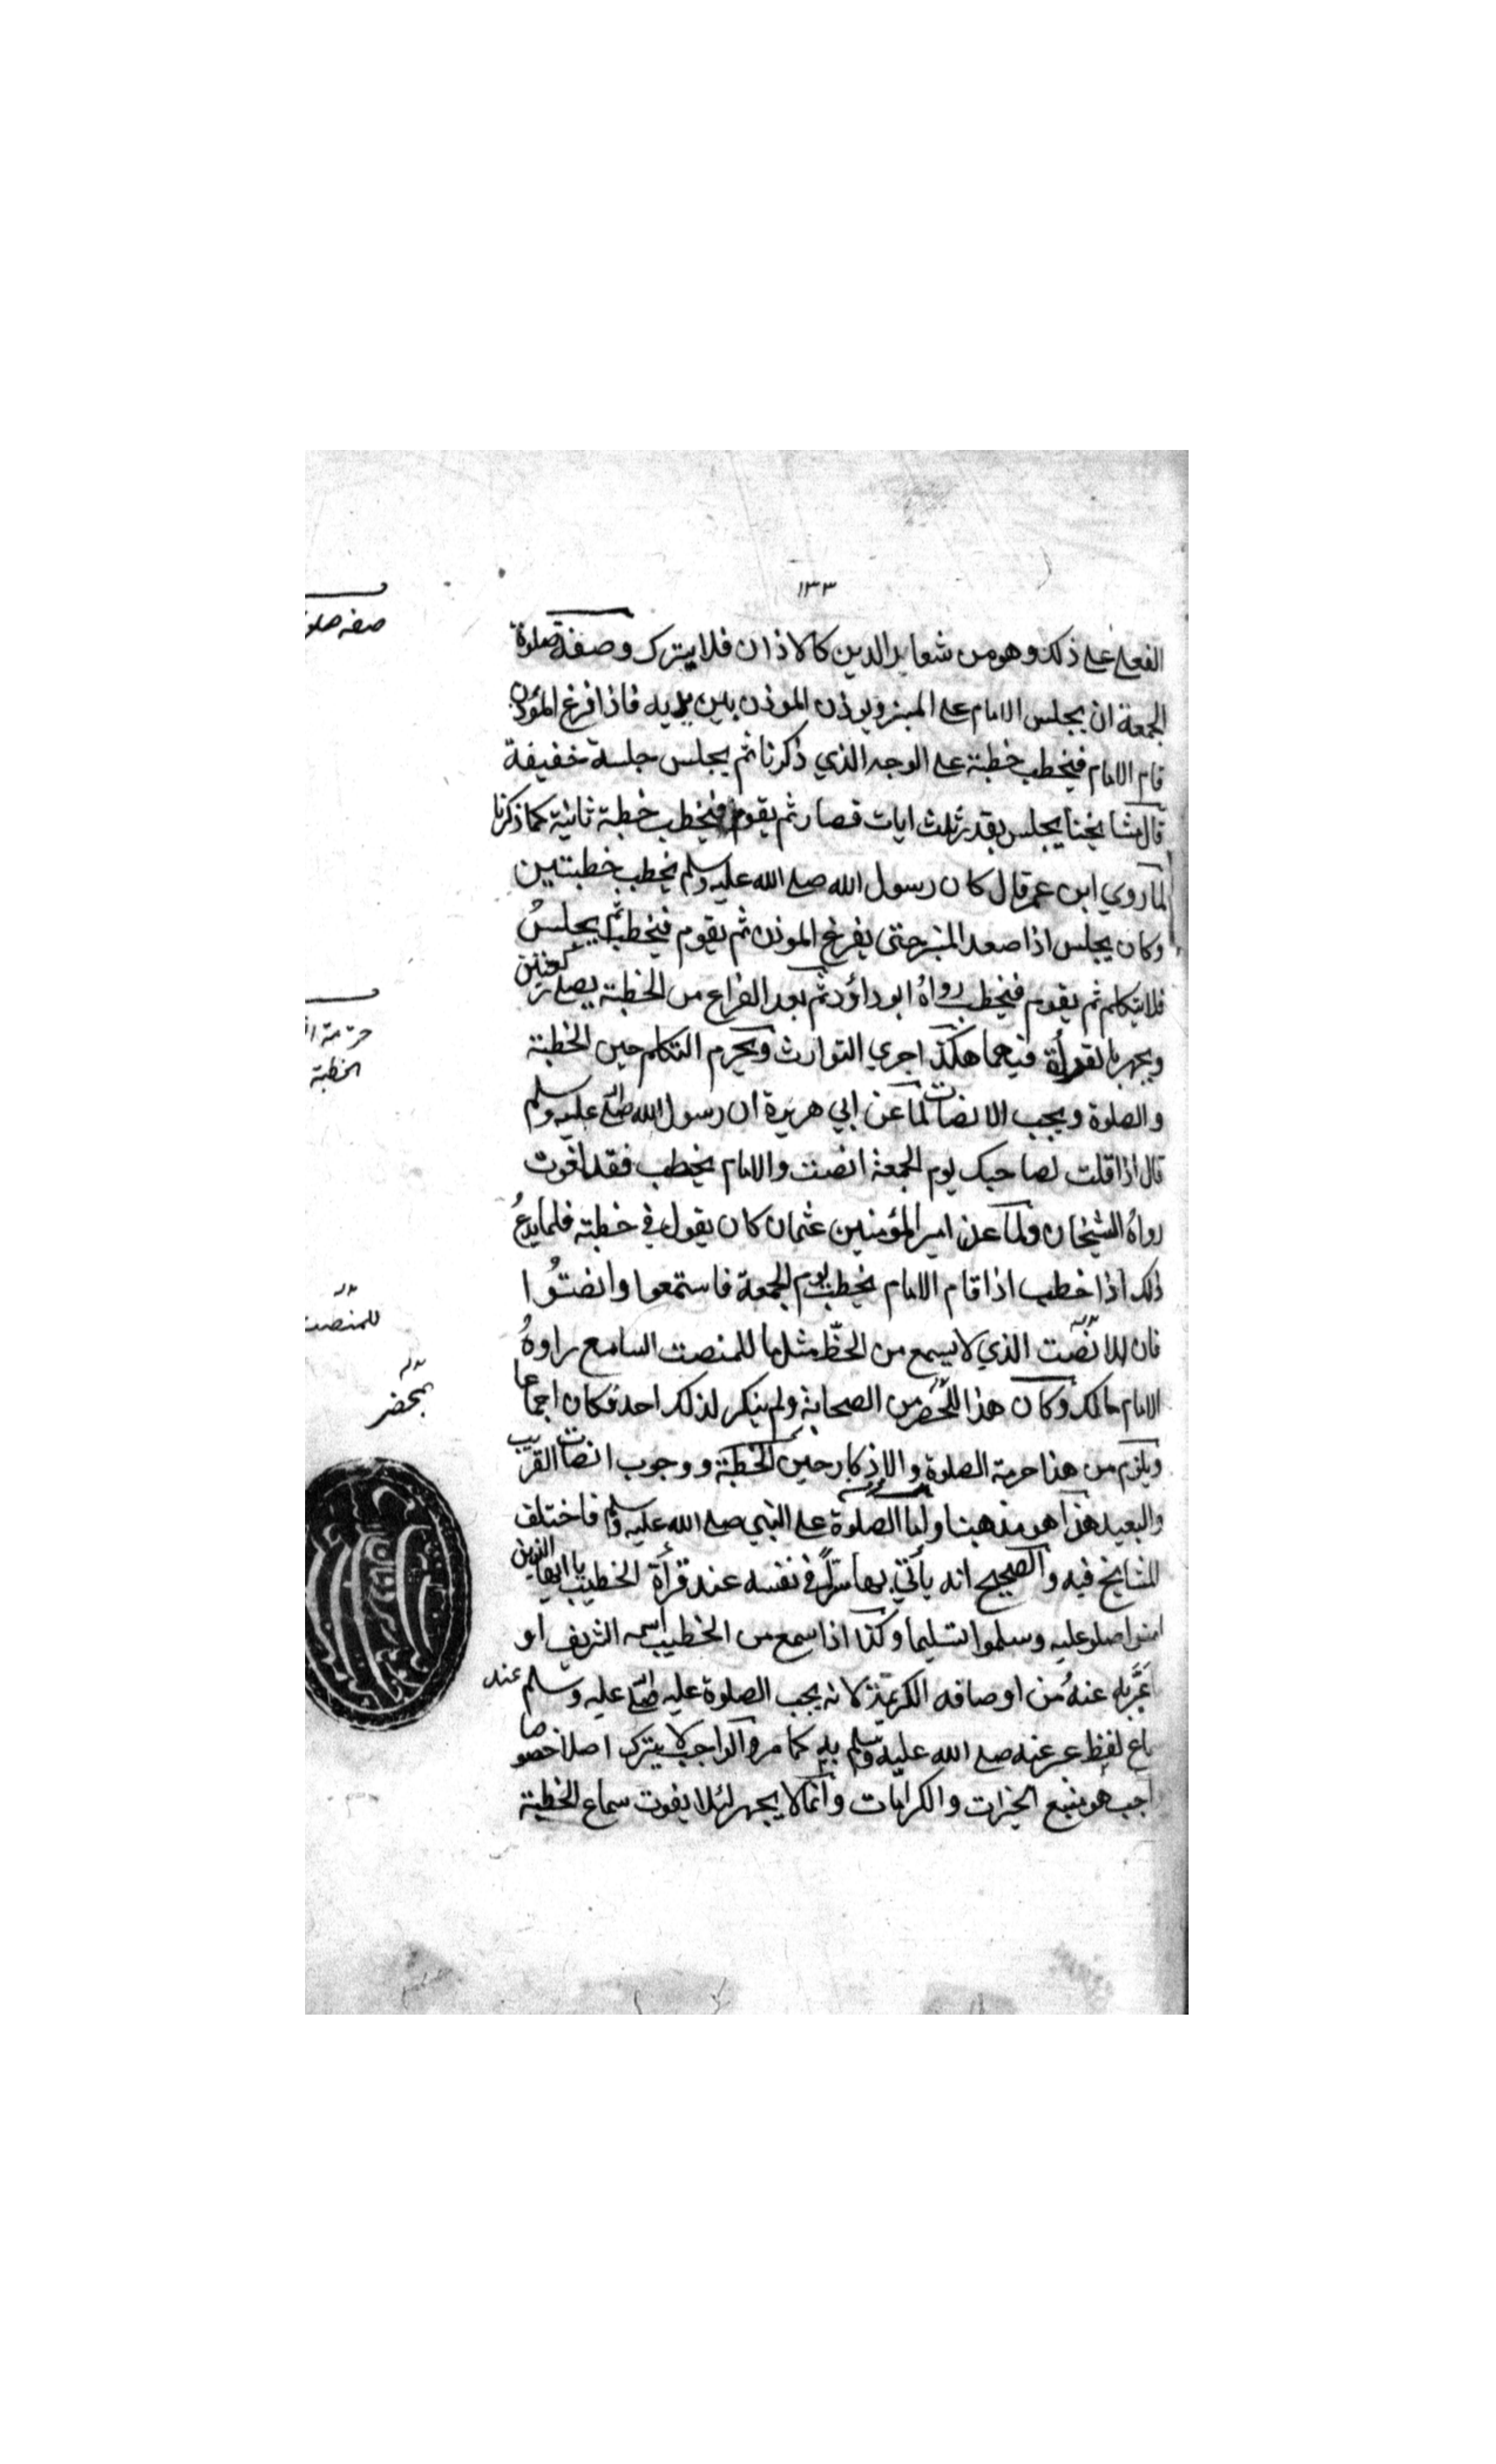 ١٣٣
الفعلى على ذلك وهو من شعاير الدين كالاذان فلا يترك وصفة صلوة
الجمعة ان يجلس الامام على المنبر ويوذن الموذن بين يديه فاذا فرغ المؤذن
قام الامام فيخطب خطبة على الوجه الذي ذكرنا ثم يجلس جلسة خفيفة
قال مشايخنا يجلس بقدر ثلث ايات قصار ثم يقوم فيخطب خطبة ثانية كما ذكرنا
لما روي ابن عمر قال كان رسول الله صلى الله عليه وسلم يخطب خطبتين
وكان يجلس اذا صعد المنبر حتى يفرغ الموذن ثم يقوم فيخطب ثم يجلسُ
فلا يتكلم ثم يقوم فيخطب رواهُ ابو داؤد ثم بعد الفراغ من الخطبة يصلى ركعتين
ويجهر بالقرأة فيهما هكذا جري التوارث ويحرم التكلم حين الخطبة
والصلوة ويجب الانصات لما عن ابي هريرة ان رسول الله صلى الله عليه وسلم
قال اذا قلت لصاحبك يوم الجمعة انصت والامام يخطب فقد لغوت
رواهُ الشيخان ولما عن امير المؤمنين عثمان كان يقول في خطبته فلما يدعُ
ذلك اذا خطب اذا قام الامام يخطب يوم الجمعة فاستمعوا وانصتُوا
فان للانصت الذي لا يسمع من الحظّ مثل ما للمنصت السامع راوهُ
الامام مالك وكان هذا للحضر من الصحابة ولم ينكر لذلك احد فكان اجماعا
ويلزم من هذا حرمة الصلوة والاذكار حين الخطبة ووجوب انصات القريب
والبعيد هذا هو مذهبنا واما الصلوة على النبي صلى الله عليه وسلم فاختلف
المشايخ فيه والصحيح انه يأتي بها سرًّا في نفسه عند قرأة الخطيب يا ايها الذين
امنوا صلو عليه وسلموا تسليما وكذا اذا سمع من الخطيب اسمه الشريف او
عبّر به عنهُ من اوصافه الكريمة لانه يجب الصلوة عليه صلى الله عليه وسلم عند
لفظ عبر عنه صلى الله عليه وسلم به كما مر والواجب لا يترك اصلا خصوصا
هو منبع الخيرات والكرامات وانما لا يجهر لئلا يفوت سماع الخطبة
صفه صلو
حرمة
الخطبة
للمنصت
بمحضر